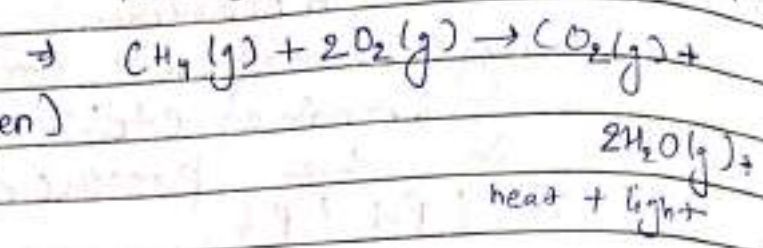 → CH₄(g) + 2O₂(g) → CO₂(g) +
en)
2H₂O(g) +
heat + light